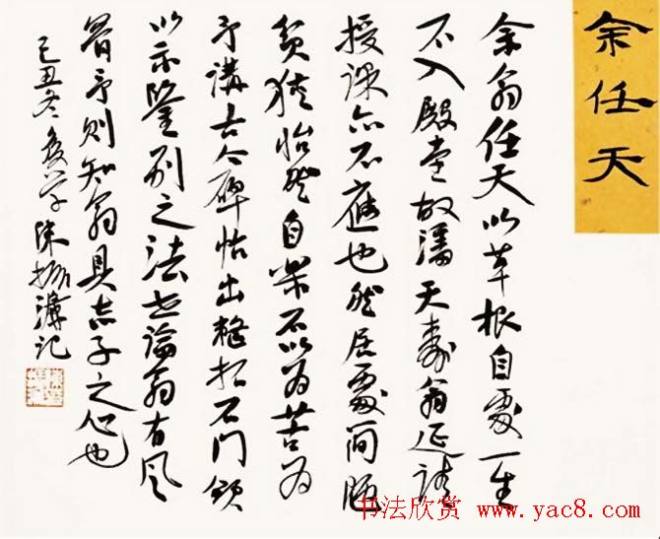 余任天
余翁任天以草根自處一生
不入殿堂故潘天壽翁延請
授課亦不應也然居處簡陋
貧猶怡然自樂不以为苦为
予講古今碑帖出整拓石門頌
以示鑒别之法世論翁有風
骨予則知翁具赤子之心也
己丑冬後学陳振濂记
书法欣赏 www.yac8.com